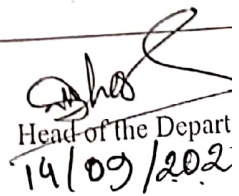 Head of the Depart
14/09/202